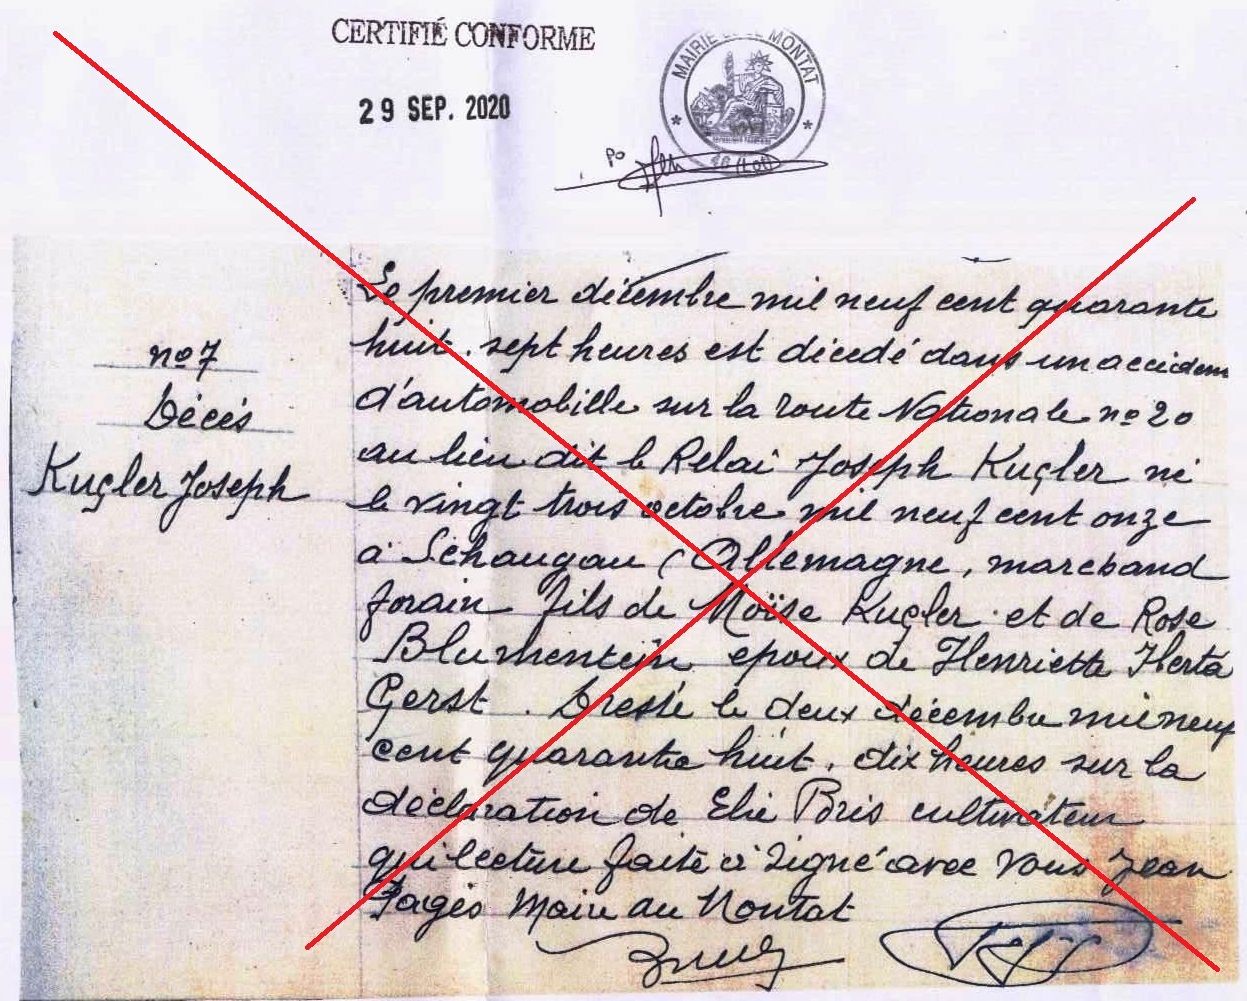 CERTIFIÉ CONFORME
29 SEP. 2020
MAIRIE DE LE MONTAT
46 (Lot)
po
n°7
Décés
Kugler Joseph
Le premier décembre mil neuf cent quarante
huit. sept heures est décédé dans un acciden
d'automobille sur la route Nationale n° 20
au lieu dit le Relai Joseph Kugler né
le vingt trois octobre mil neuf cent onze
à Schaugau (Allemagne, marchand
forain fils de Moïse Kugler et de Rose
Blumentein epoux de Henriette Herta
Gerst. Dressé le deux décembre mil neuf
cent quarante huit. dix heures sur la
déclaration de Elie Bris cultivateur
qui lecture faite a signé avec Nous Jean
Pagès Maire du Montat